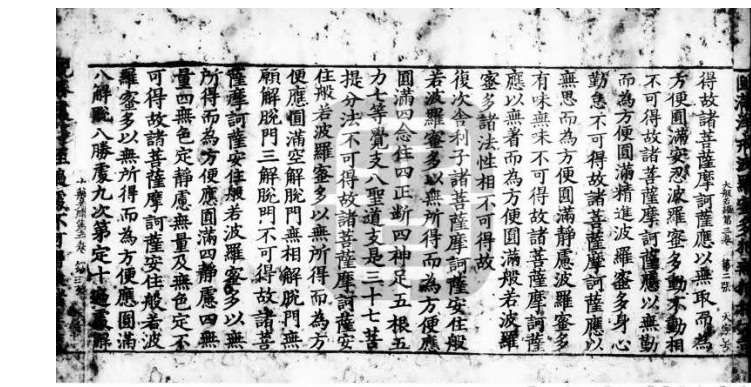 圓滿
得故諸菩薩摩訶薩應以無取而為
大般若經第三卷 第二張 天字
方便圓滿安忍波羅蜜多動不動相
不可得故諸菩薩摩訶薩應以無勤
而為方便圓滿精進波羅蜜多身心
勤怠不可得故諸菩薩摩訶薩應以
無思而為方便圓滿靜慮波羅蜜多
有味無味不可得故諸菩薩摩訶薩
應以無著而為方便圓滿般若波羅
蜜多諸法性相不可得故
復次舍利子諸菩薩摩訶薩安住般
若波羅蜜多以無所得而為方便應
圓滿四念住四正斷四神足五根五
力七等覺支八聖道支是三十七菩
提分法不可得故諸菩薩摩訶薩安
住般若波羅蜜多以無所得而為方
便應圓滿空解脫門無相解脫門無
願解脫門三解脫門不可得故諸菩
薩摩訶薩安住般若波羅蜜多以無
所得而為方便應圓滿四靜慮四無
量四無色定靜慮無量及無色定不
可得故諸菩薩摩訶薩安住般若波
羅蜜多以無所得而為方便應圓滿
八解脫八勝處九次第定十遍處解
遍處不可